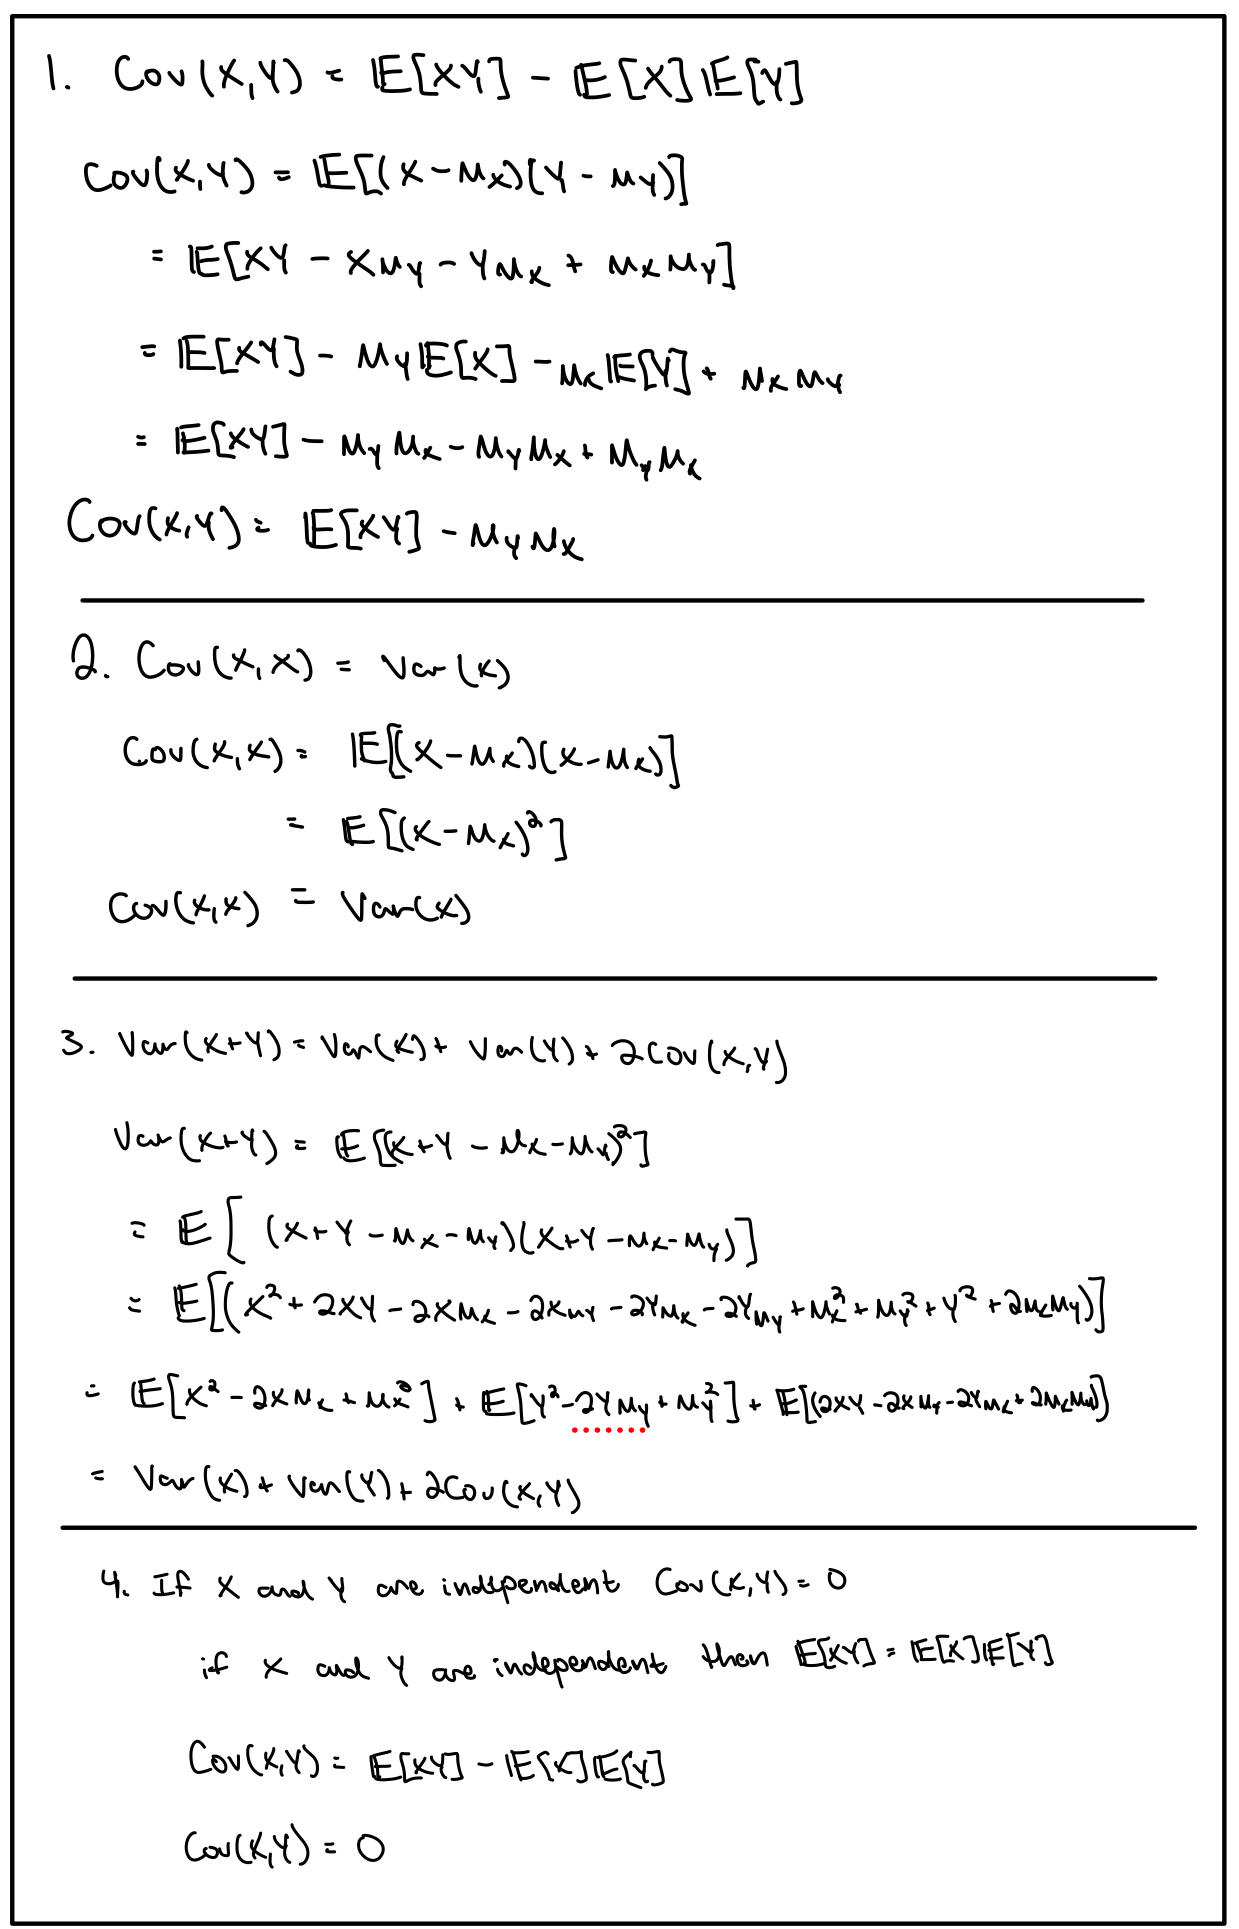 1. Cov(X,Y) = 𝔼[XY] - 𝔼[X]𝔼[Y]
Cov(X,Y) = 𝔼[(X-μ_X)(Y-μ_Y)]
= 𝔼[XY - Xμ_Y - Yμ_X + μ_Xμ_Y]
= 𝔼[XY] - μ_Y𝔼[X] - μ_X𝔼[Y] + μ_Xμ_Y
= 𝔼[XY] - μ_Yμ_X - μ_Yμ_X + μ_Yμ_X
Cov(X,Y) = 𝔼[XY] - μ_Yμ_X
2. Cov(X,X) = Var(X)
Cov(X,X) = 𝔼[(X-μ_X)(X-μ_X)]
= 𝔼[(X-μ_X)²]
Cov(X,X) = Var(X)
3. Var(X+Y) = Var(X) + Var(Y) + 2Cov(X,Y)
Var(X+Y) = 𝔼[(X+Y-μ_X-μ_Y)²]
= 𝔼[(X+Y-μ_X-μ_Y)(X+Y-μ_X-μ_Y)]
= 𝔼[(X² + 2XY - 2Xμ_X - 2Xμ_Y - 2Yμ_X - 2Yμ_Y + μ_X² + μ_Y² + Y² + 2μ_Xμ_Y)]
= 𝔼[X² - 2Xμ_X + μ_X²] + 𝔼[Y² - 2Yμ_Y + μ_Y²] + 𝔼[(2XY - 2Xμ_Y - 2Yμ_X + 2μ_Xμ_Y)]
= Var(X) + Var(Y) + 2Cov(X,Y)
4. If X and Y are independent Cov(X,Y) = 0
if X and Y are independent then 𝔼[XY] = 𝔼[X]𝔼[Y]
Cov(X,Y) = 𝔼[XY] - 𝔼[X]𝔼[Y]
Cov(X,Y) = 0